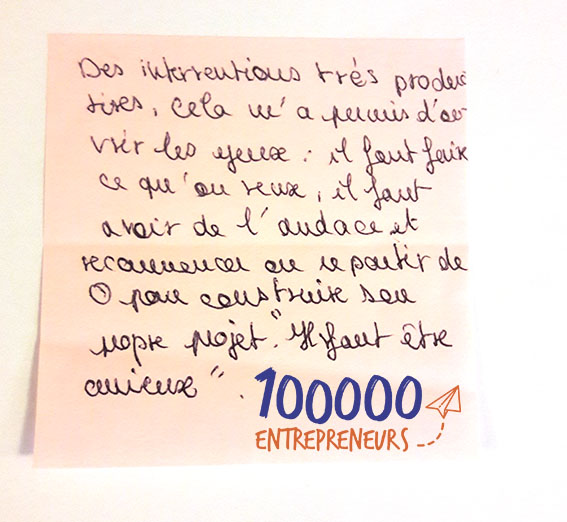 Des interventions très produc
tives, cela m'a permis d'ou
vrir les yeux : il faut faire
ce qu'on veux, il faut
avoir de l'audace et
recommencer ou repartir de
0 pour construire son
propre projet. "Il faut être
curieux".
100000
ENTREPRENEURS